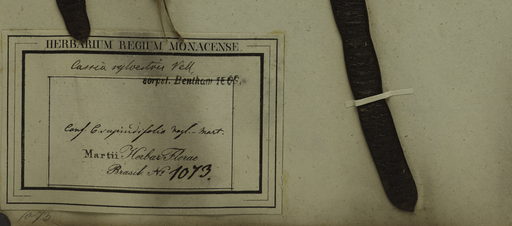 HERBARIUM REGIUM MONACENSE.
Cassia sylvestris Vell.
compl. Bentham 1869.
Conf C. sapindifolia Vogl. Mart.
Martii Herbar. Florae
Brasil. No 1073.
1073